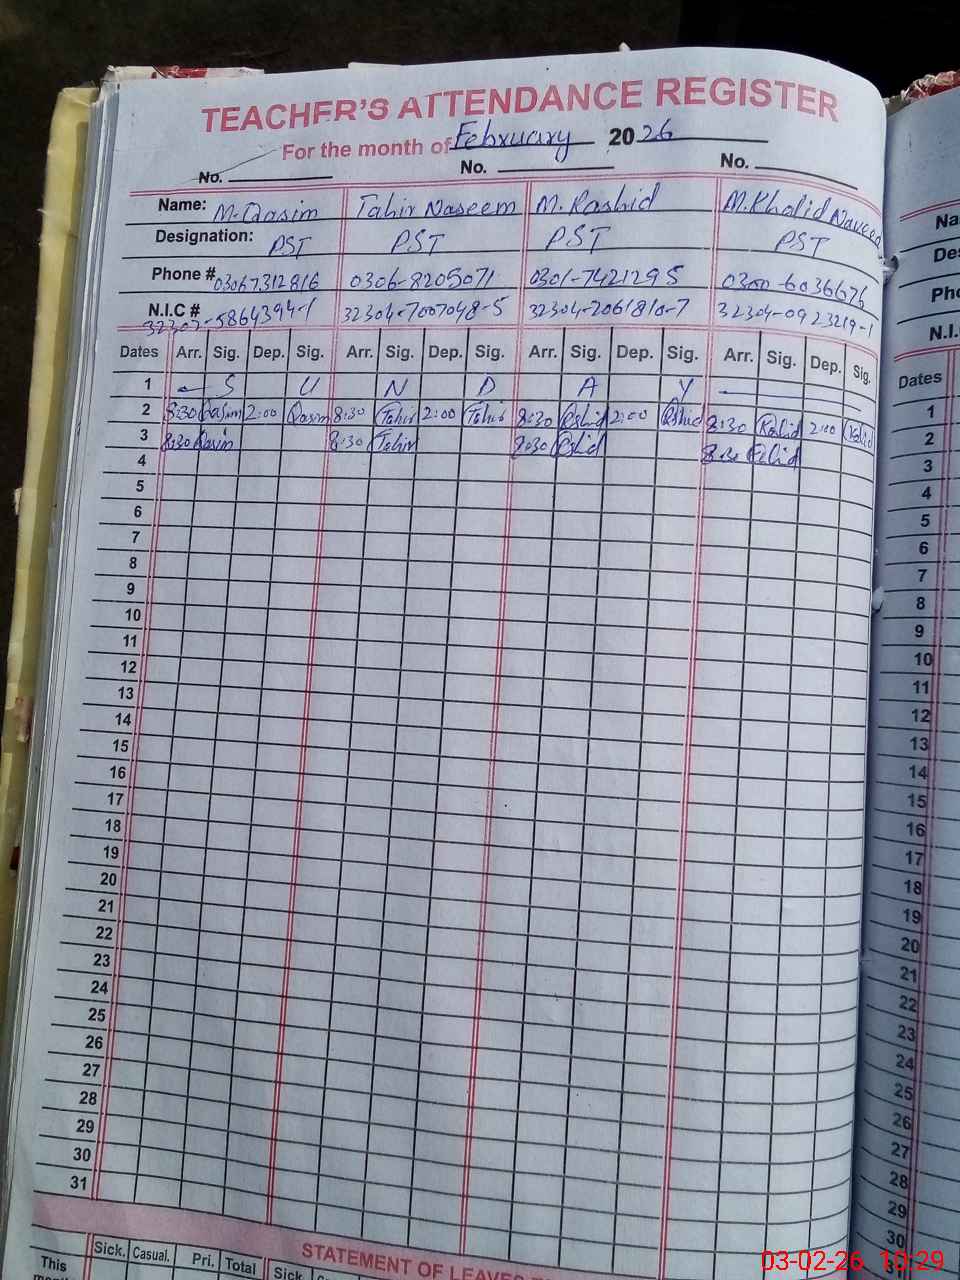 TEACHER'S ATTENDANCE REGISTER
For the month of February 2026
No. No. No.
Name: M.Qasim Tahir Naseem M.Rashid M.Khalid Naveed
Designation: PST PST PST PST
Phone # 03067312816 0306-8205071 0301-7421295 0300-6036676
N.I.C # 32304-7007048-5 32304-2061810-7 32304-0923219-1
Dates Arr. Sig. Dep. Sig. Arr. Sig. Dep. Sig. Arr. Sig. Dep. Sig. Arr. Sig. Dep. Sig.
1 S U N D A Y
2 8:30 Qasim 2:00 Qasim 8:30 Tahir 2:00 Tahir 8:30 Rshid 2:00 Rshid 8:30 2:00
3 8:30 Qasim 8:30 Tahir 8:30 Rshid 8:30
4
5
6
7
8
9
10
11
12
13
14
15
16
17
18
19
20
21
22
23
24
25
26
27
28
29
30
31
STATEMENT OF LEAVES
Sick. Casual. Pri. Total Sick.
This
Na
Des
Pho
N.I.
Dates
1
2
3
4
5
6
7
8
9
10
11
12
13
14
15
16
17
18
19
20
21
22
23
24
25
26
27
28
29
30
03-02-26 10:29